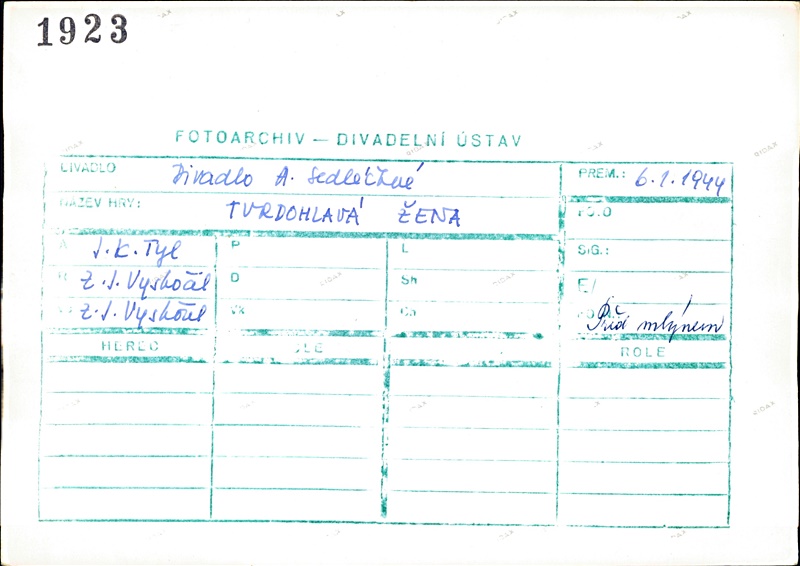 1923
FOTOARCHIV — DIVADELNÍ ÚSTAV
DIVADLO Divadlo A. Sedláčkové PREM.: 6.1.1944
NÁZEV HRY: TVRDOHLAVÁ ŽENA FOTO
A J. K. Tyl P L SIG.:
R Z. J. Vyskočil D Sh E/
Z. J. Vyskočil Vk Ch mlýnem
HEREC ROLE ROLE